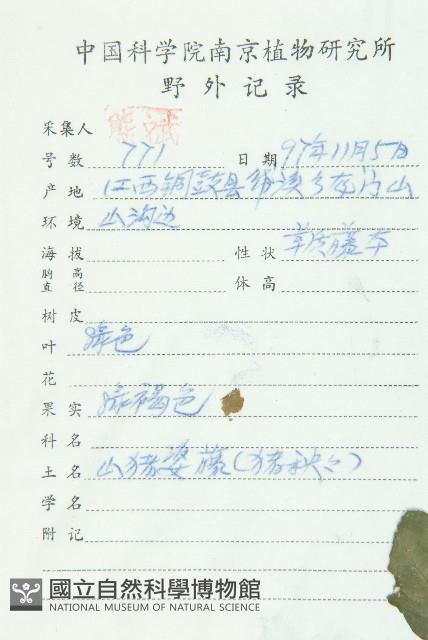 中国科学院南京植物研究所
野外记录
采集人
号数 771 日期 97年11月5日
产地 江西铜鼓县 山
环境 山沟边
海拔 性状 草质藤本
胸高直径 体高
树皮
叶 绿色
花
果实 绿褐色
科名
土名 山猪婆藤(猪秧々)
学名
附记
國立自然科學博物館
NATIONAL MUSEUM OF NATURAL SCIENCE